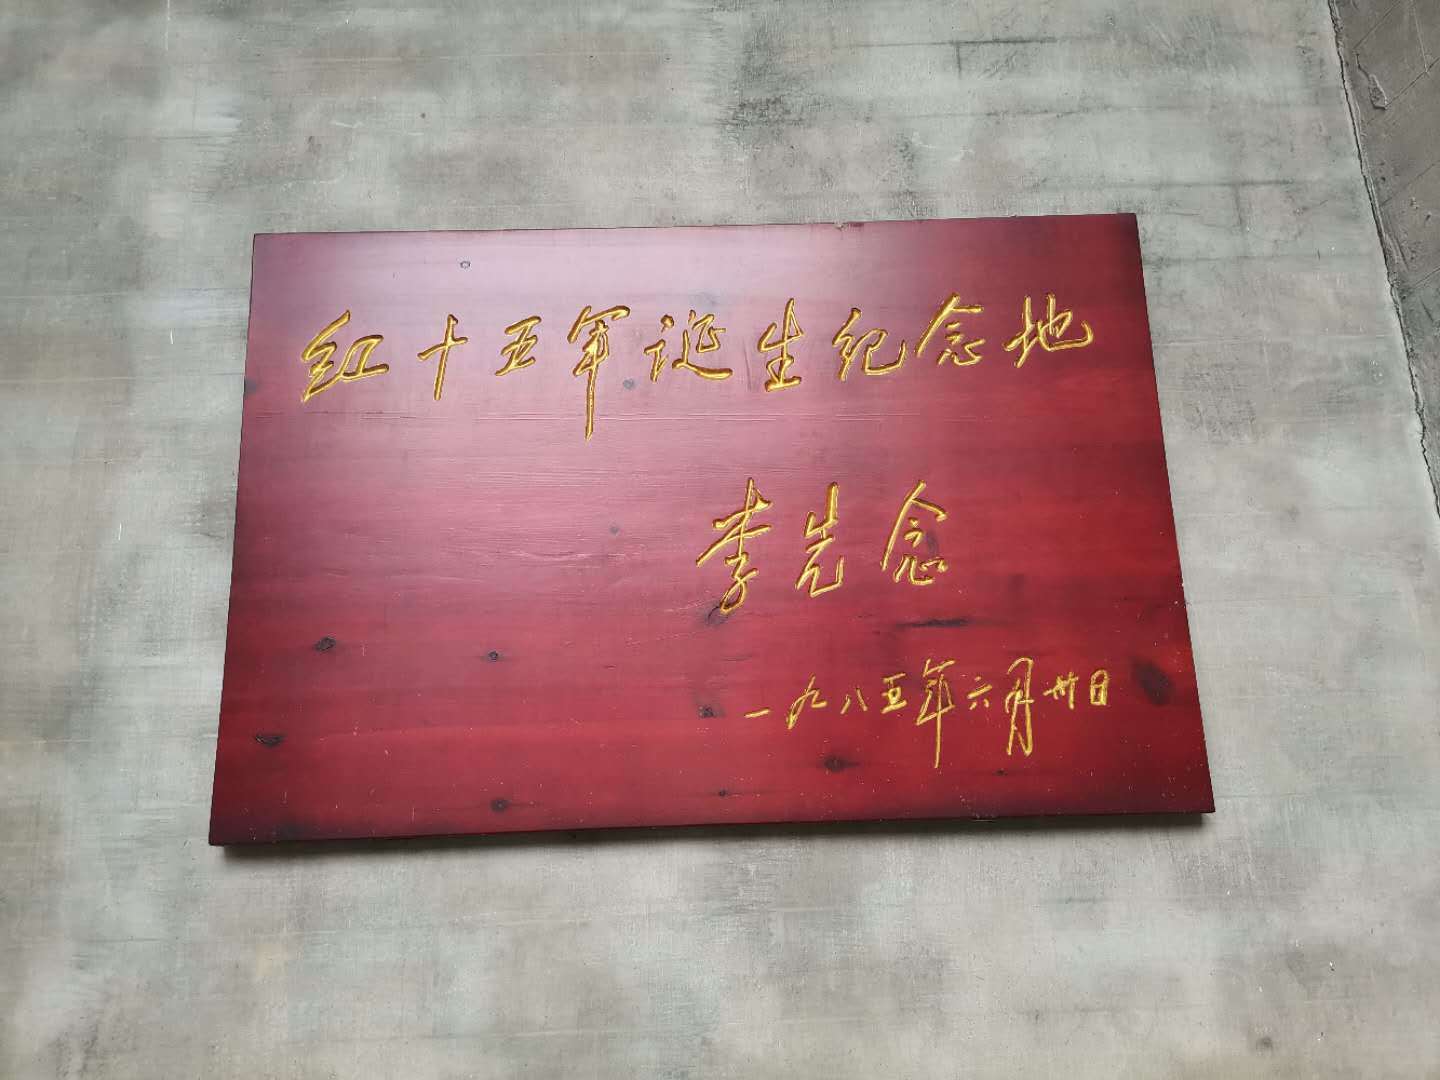 红十五军诞生纪念地
李先念
一九八五年六月卅日